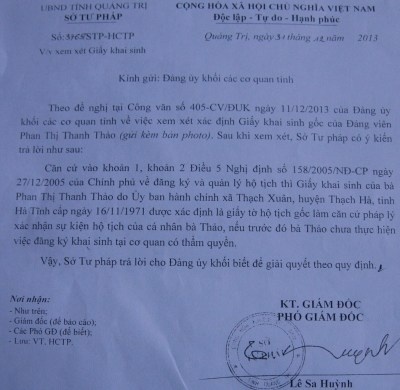 UBND TỈNH QUẢNG TRỊ
SỞ TƯ PHÁP
CỘNG HÒA XÃ HỘI CHỦ NGHĨA VIỆT NAM
Độc lập - Tự do - Hạnh phúc
Số: /STP-HCTP
V/v xem xét Giấy khai sinh
Quảng Trị, ngày 31 tháng 12 năm 2013
Kính gửi: Đảng ủy khối các cơ quan tỉnh
Theo đề nghị tại Công văn số 405-CV/ĐUK ngày 11/12/2013 của Đảng ủy
khối các cơ quan tỉnh về việc xem xét xác định Giấy khai sinh gốc của Đảng viên
Phan Thị Thanh Thảo (gửi kèm bản photo). Sau khi xem xét, Sở Tư pháp có ý kiến
trả lời như sau:
Căn cứ vào khoản 1, khoản 2 Điều 5 Nghị định số 158/2005/NĐ-CP ngày
27/12/2005 của Chính phủ về đăng ký và quản lý hộ tịch thì Giấy khai sinh của bà
Phan Thị Thanh Thảo do Ủy ban hành chính xã Thạch Xuân, huyện Thạch Hà, tỉnh
Hà Tĩnh cấp ngày 16/11/1971 được xác định là giấy tờ hộ tịch gốc làm căn cứ pháp lý
xác nhận sự kiện hộ tịch của cá nhân bà Thảo, nếu trước đó bà Thảo chưa thực hiện
việc đăng ký khai sinh tại cơ quan có thẩm quyền.
Vậy, Sở Tư pháp trả lời cho Đảng ủy khối biết để giải quyết theo quy định.
Nơi nhận:
- Như trên;
- Giám đốc (để báo cáo);
- Các Phó GĐ (để biết);
- Lưu: VT, HCTP.
KT. GIÁM ĐỐC
PHÓ GIÁM ĐỐC
Lê Sa Huỳnh